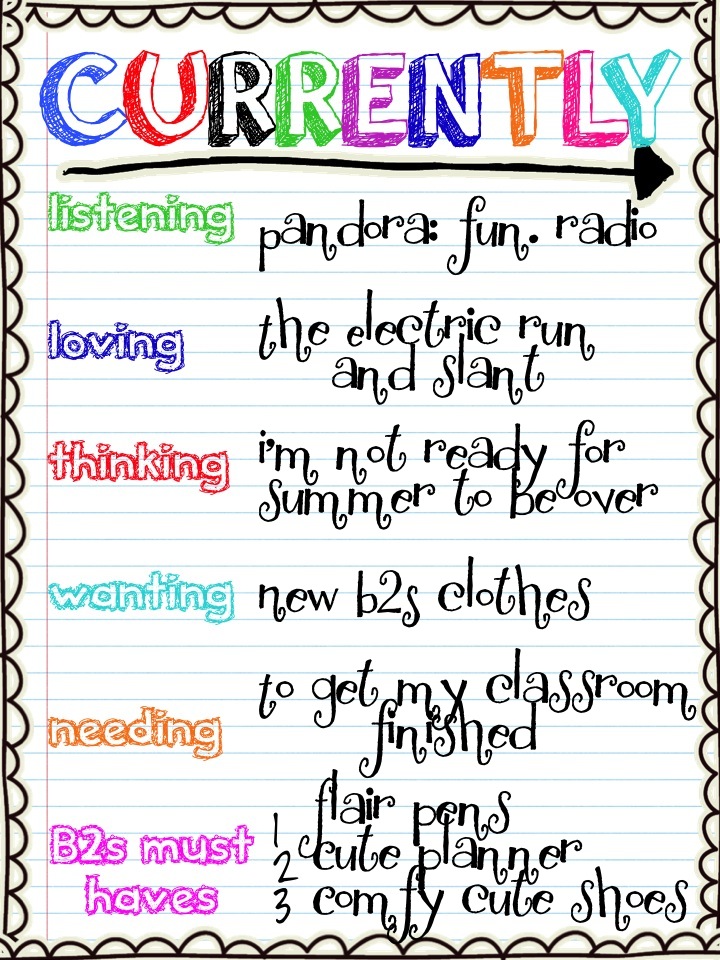 CURRENTLY
listening pandora: fun. radio
loving the electric run
and slant
thinking i'm not ready for
summer to be over
wanting new b2s clothes
to get my classroom
needing finished
1 flair pens
B2s must 2 cute planner
haves 3 comfy cute shoes